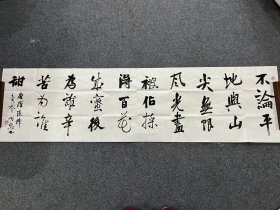 不論平
地與山
尖無限
風光盡
被佔採
得百花
成蜜後
為誰辛
苦為誰
甜